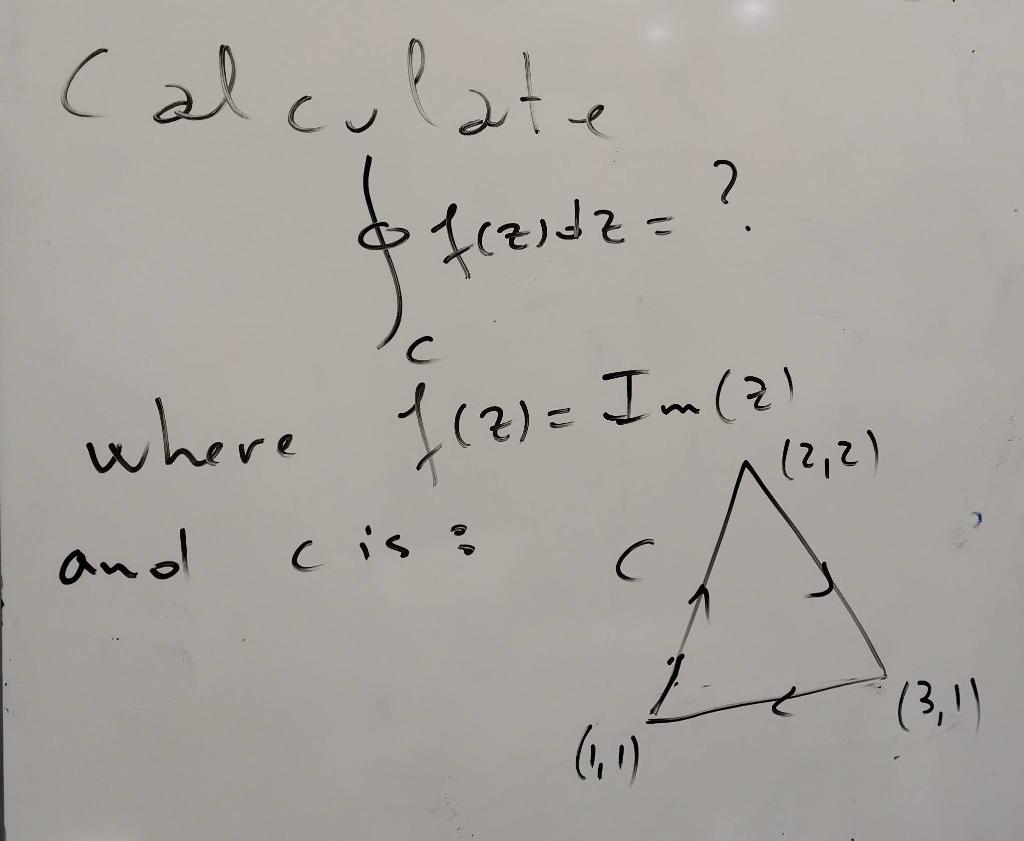 Calculate
∮ f(z)dz = ?
C
where f(z) = Im(z)
(2,2)
and c is : C
(3,1)
(1,1)